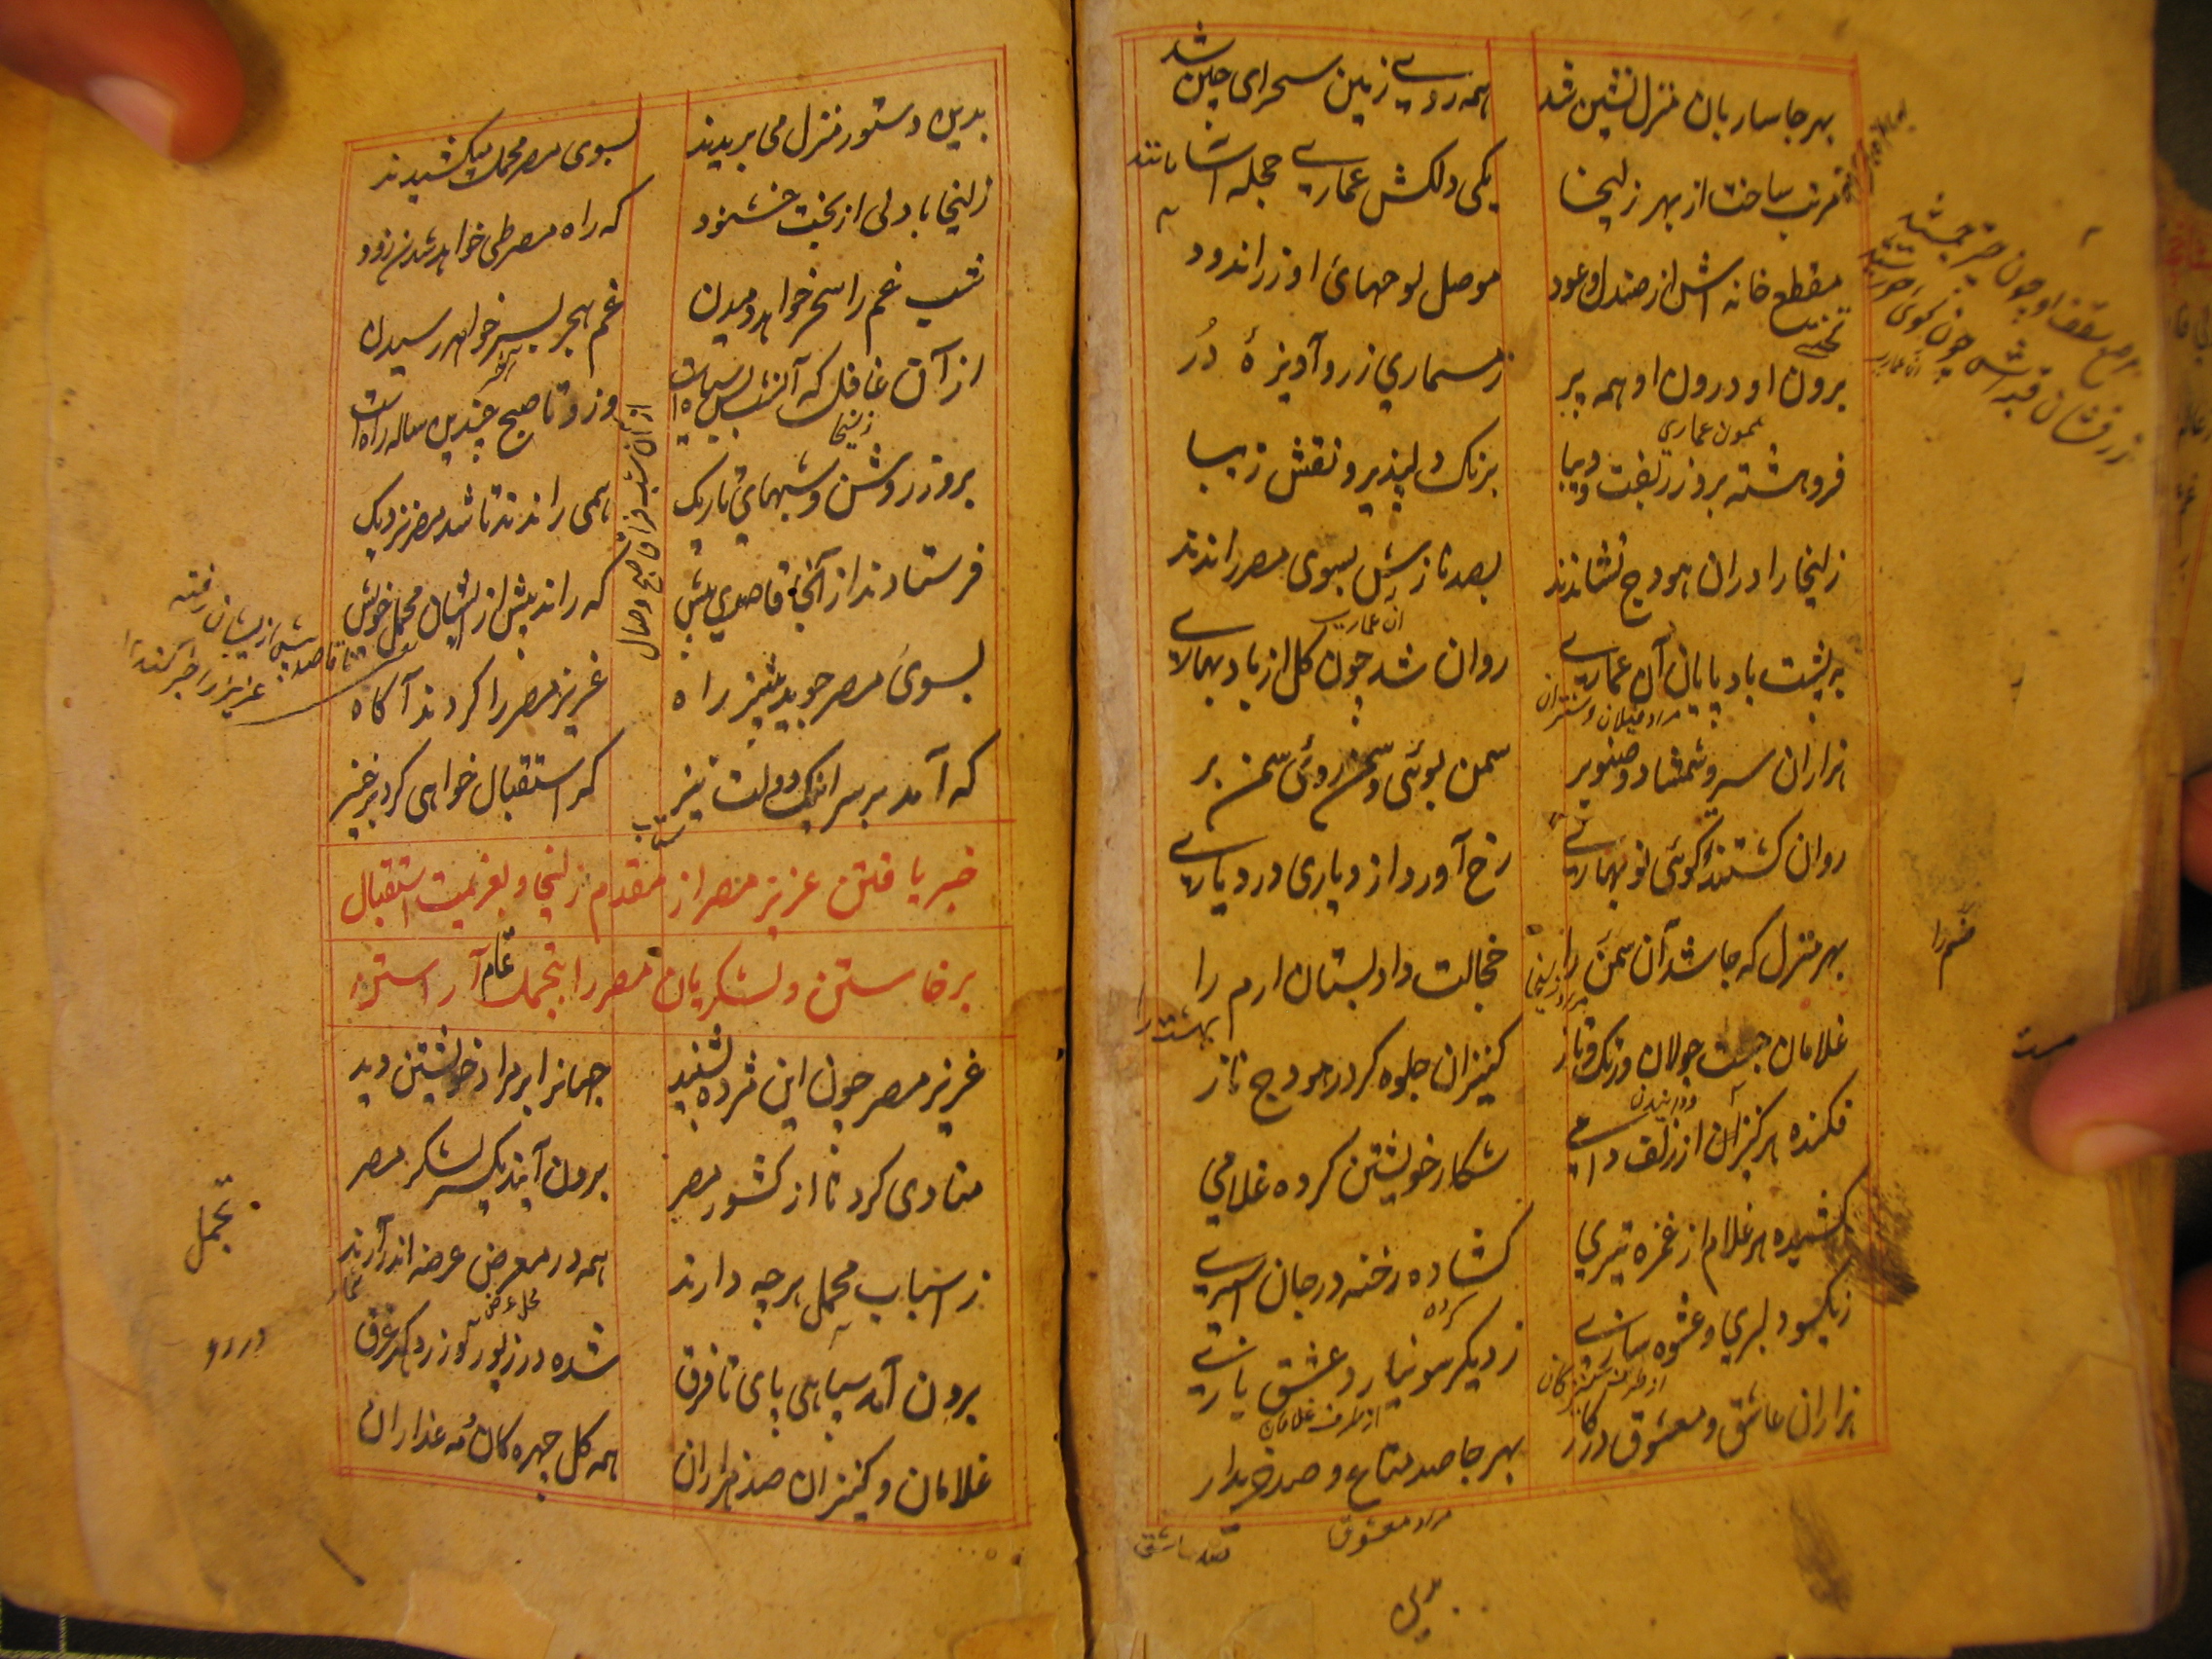 بهر جا ساربان منزل نشین شد
همه روے زمین سحرای چین شد
مرتب ساخت از بهر زلیخا
یکی دلکش عمارے حجله آسا
مقطع خانه اش از صندل و عود
موصل لوحهائ او زراندود
برون او درون او همه پر
ز مسماری زر و آویزۀ دُر
فروهشته برو زربفت و دیبا
برنک دلپذیر و نقش زیبا
زلیخا را دران هودج نشاندند
بصد نازش بسوی مصر راندند
به پشت باد پایان آن عمارے
روان شد چون کل از باد بهارے
هزاران سرو شمشاد و صنوبر
سمن بوئی و سمن روئی سمن بر
روان کشتند کوئی نو بهارے
رخ آورد از دیاری در دیارے
بهر منزل که جا شد آن سمن را
خجالت داد بستان ارم را
غلامان جست جولان و تک و تاز
کنیزان جلوه کر در هودج ناز
فکنده هر کنیز آن از زلف دامے
شکار خویشتن کرده غلامی
کشیده هر غلام از غمزه تیری
کشاده رخنه در جان اسیرے
ز یکسو دلبری و عشوه سازے
ز دیکر سو نیاز و عشق بازے
هزاران عاشق و معشوق در کار
بهر جا صد متاع و صد خریدار
مراد معشوق
بدین
بدین دستور منزل می بریدند
بسوی مصر محمل میکشیدند
زلیخا با دلی از بخت خشنود
که راه مصر طی خواهد شدن زود
شب غم را سحر خواهد دمیدن
غم هجر بسر خواهد رسیدن
از آن غافل که آن شب بس سیاه است
وزو تا صبح چندین ساله راه است
بروز روشن و شبهائ تاریک
همی راندند تا شد مصر نزدیک
فرستادند از آنجا قاصدی پیش
که راند پیش از ایشان محمل خویش
بسوئ مصر جوید پیشتر راه
عزیز مصر را کردند آکاه
که آمد بر سر اینک دولت تیز
کر استقبال خواهی کرد برخیز
خبر یافتن عزیز مصر از مقدم زلیخا و بعزیمت استقبال
برخاستن و لشکریان مصر را بتجمل تمام آراستن
عزیز مصر چون این مژده بشنید
جهانرا بر مراد خویشتن دید
منادی کرد تا از کشور مصر
برون آیند یکسر لشکر مصر
ز اسباب محمل هرچه دارند
همه در معرض عرضه اندر آرند
برون آمد سپاهی پای تا فرق
شده در زیور و زر و کهر غرق
غلامان و کنیزان صد هزاران
همه کل چهره کان و مه عذاران
از آن شب فراق صبح وصال
تجمل